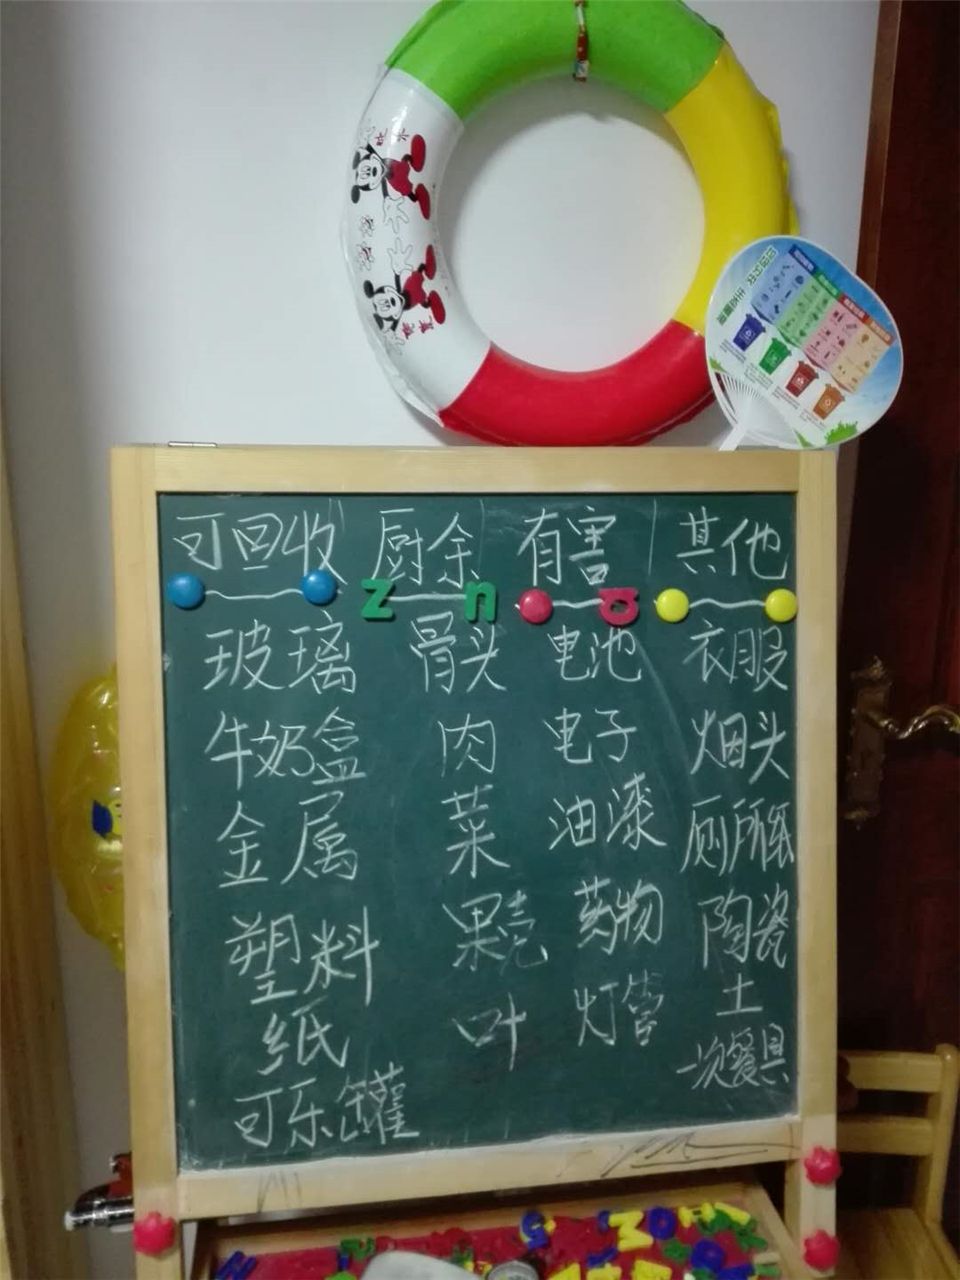 可回收 厨余 有害 其他
z n a
玻璃 骨头 电池 衣服
牛奶盒 肉 电子 烟头
金属 菜 油漆 厕所纸
塑料 果壳 药物 陶瓷
纸 叶 灯管 土
可乐罐 一次餐具